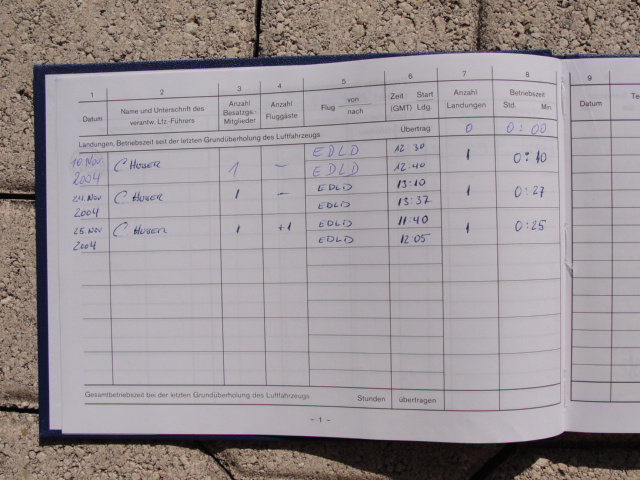 1 2 3 4 5 6 7 8 9
Datum Name und Unterschrift des verantw. Lfz.-Führers Anzahl Besatzgs.- Mitglieder Anzahl Fluggäste Flug von nach Zeit Start (GMT) Ldg. Anzahl Landungen Betriebszeit Std. Min. Datum Te
Landungen, Betriebszeit seit der letzten Grundüberholung des Luftfahrzeugs Übertrag 0 0:00
10 Nov. EDLD 12:30
2004 C. Huber 1 – EDLD 12:40 1 0:10
24. Nov EDLD 13:10
2004 C. Huber 1 – EDLD 13:37 1 0:27
25. Nov EDLD 11:40
2004 C. Huber 1 +1 EDLD 12:05 1 0:25
Gesamtbetriebszeit bei der letzten Grundüberholung des Luftfahrzeugs Stunden übertragen
– 1 –